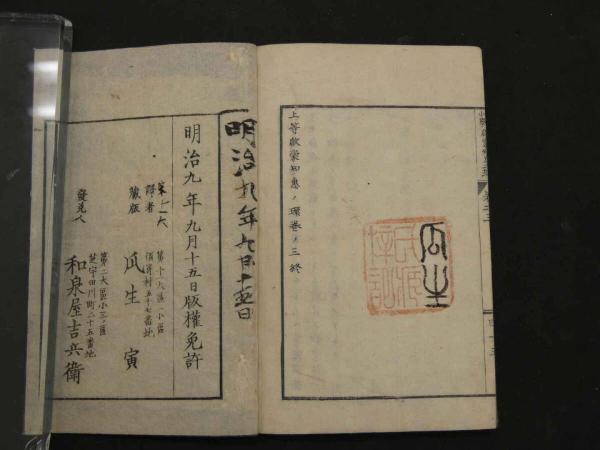 上等啟蒙知惠ノ環巻ノ三終
瓜生
明治九年九月十五日
明治九年九月十五日版權免許
譯者
藏版
第十大區一小區
瓜生寅
發兌人
第二大區小三ノ區
芝宇田川町二十五番地
和泉屋吉兵衛